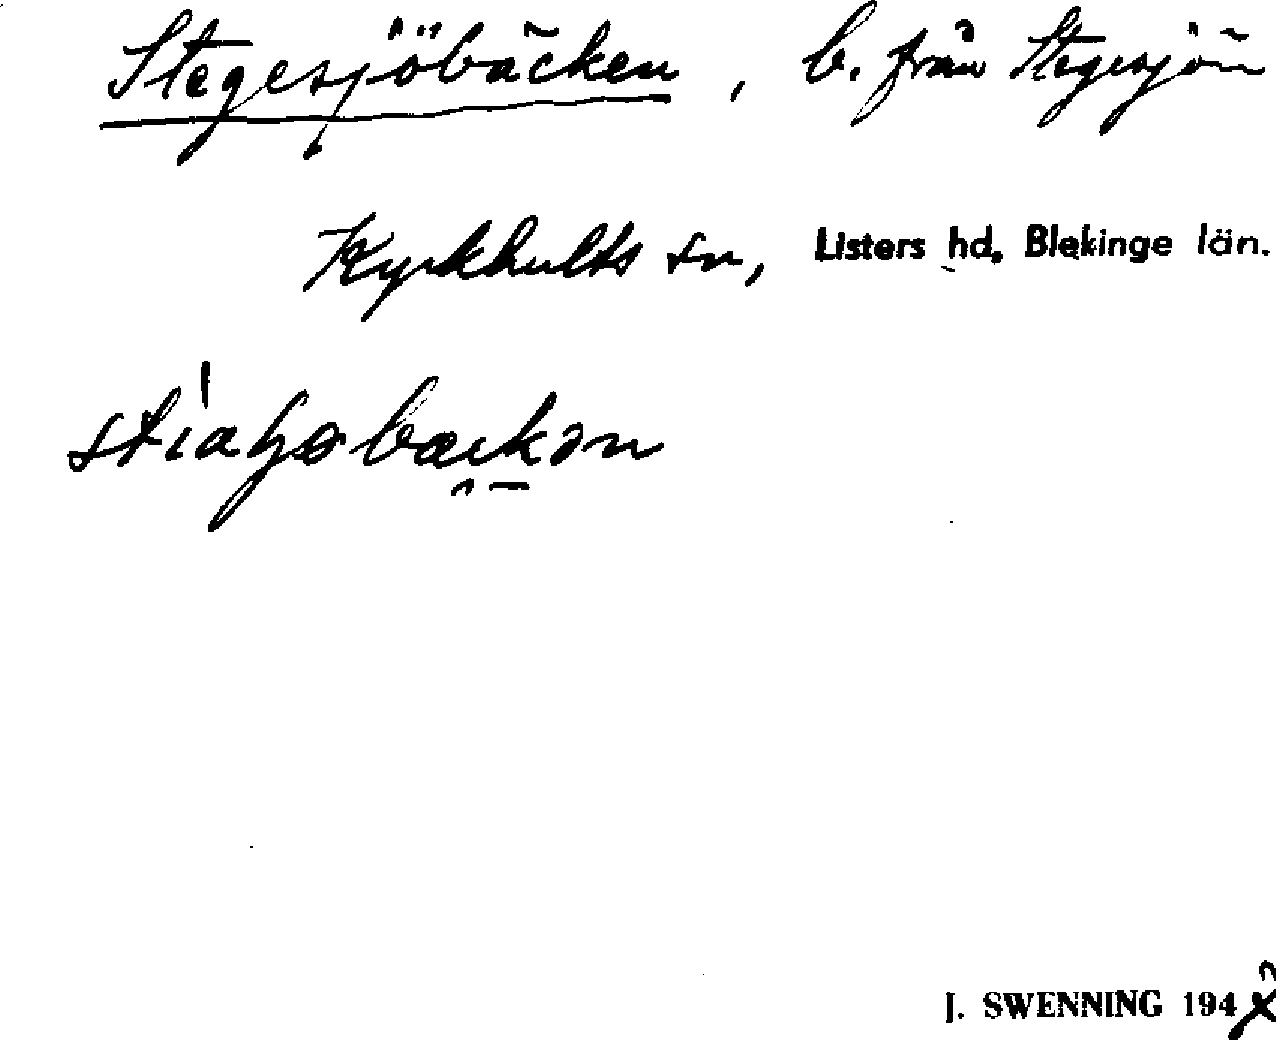 Stegesjöbäcken, b. från Stegesjön
Kyrkhults sn, Listers hd. Blekinge län.
J. SWENNING 194